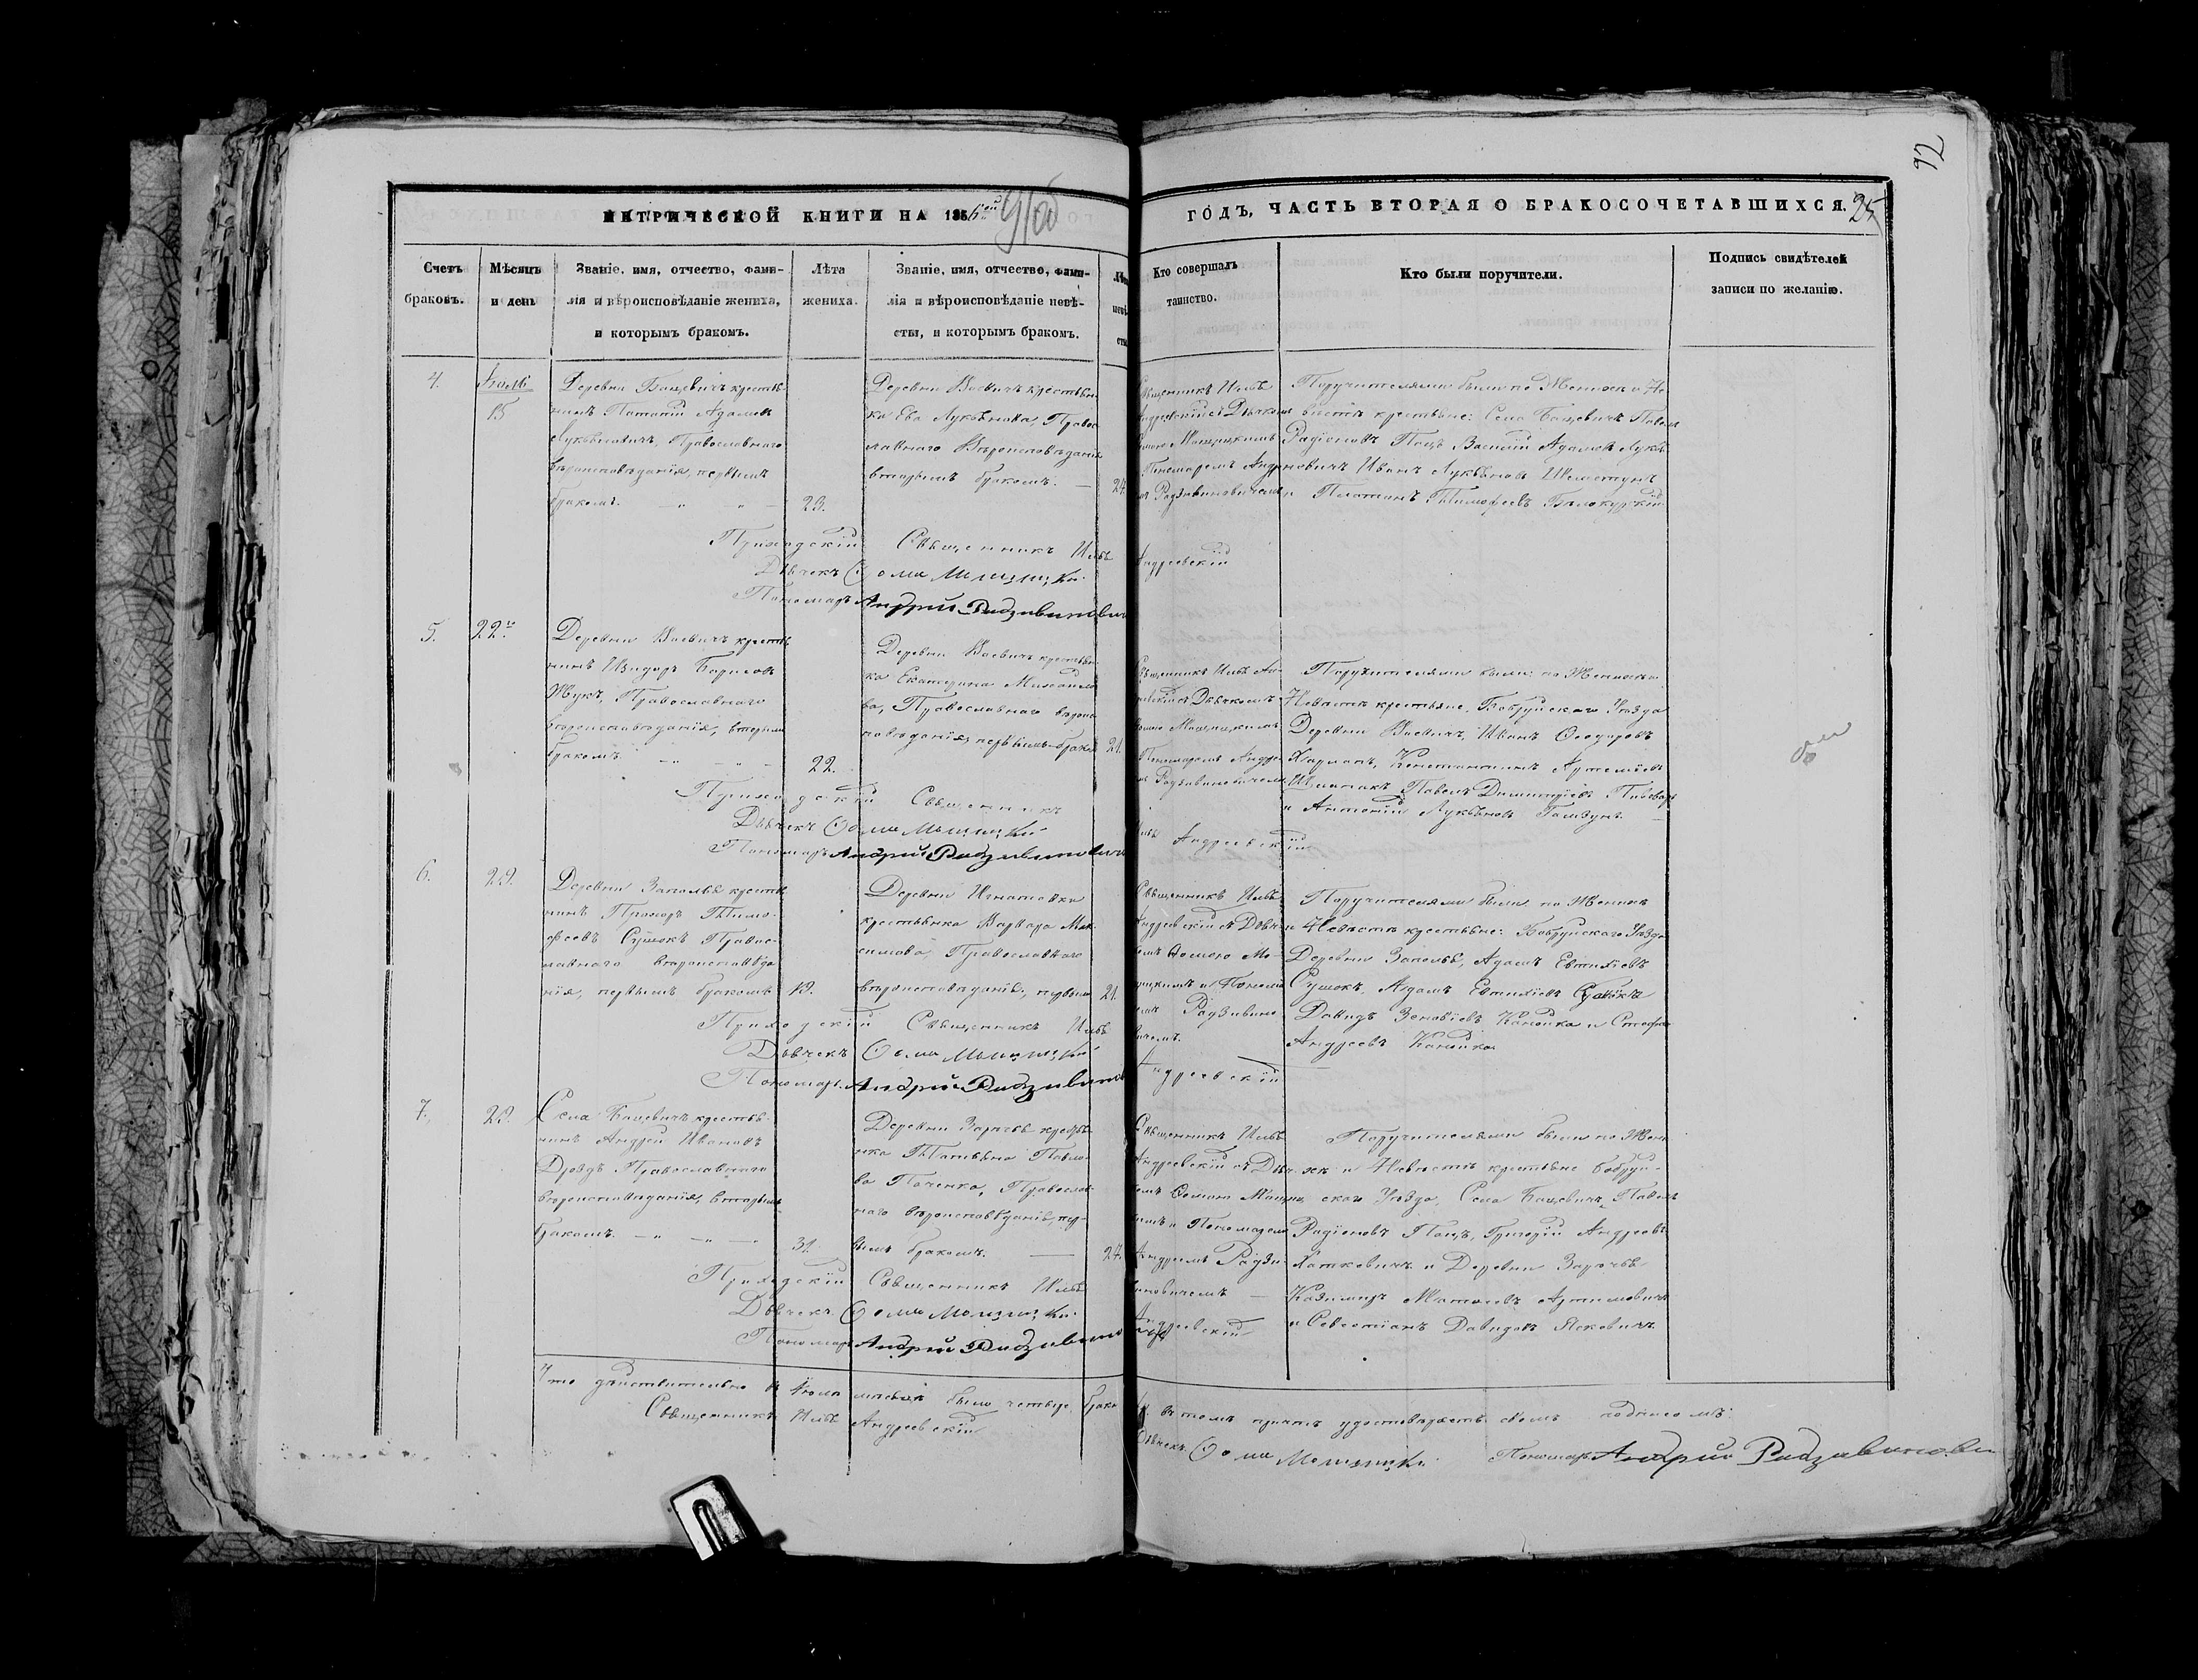 92
МЕТРИЧЕСКОЙ КНИГИ НА 1856
ГОДЪ, ЧАСТЬ ВТОРАЯ О БРАКОСОЧЕТАВШИХСЯ.
25
Счетъ
браковъ.
Мѣсяцъ
и день
Званіе, имя, отчество, фами-
лія и вѣроисповѣданіе жениха,
и которымъ бракомъ.
Лѣта
жениха.
Званіе, имя, отчество, фами-
лія и вѣроисповѣданіе невѣ-
сты, и которымъ бракомъ.
Кто совершалъ
таинство.
Кто были поручители.
Подпись свидѣтелей
записи по желанію.
4.
15
Деревни Бацевичъ крестья
нинъ Потапій Адамовъ
Лукьяновичъ, Православнаго
вѣроисповѣданія, первымъ
бракомъ.
23.
Деревни Воевичъ крестьян
ка Ева Лукьянова, Правос
лавнаго Вѣроисповѣданія
вторымъ бракомъ.
24.
Священникъ Илья
Андреевскій съ Дьячкомъ
Пономаремъ
Радзивиновичемъ
Поручителями были по Женихѣ и Не
вѣстѣ крестьяне: Села Бацевичъ Павелъ
Радіоновъ Поцъ Василій Адамовъ Лукья
новичъ Иванъ Лукьяновъ Шелестунъ
и Платонъ Тимофеевъ Бѣлокурскій
Приходскій Священникъ Илья Андреевскій
Дьячекъ Ѳома Мощицкій
Пономарь Андрей Радзивинович
5.
22го
Деревни Воевичъ крестья
нинъ Изидоръ Борисовъ
Жукъ, Православнаго
вѣроисповѣданія, вторымъ
бракомъ
22.
Деревни Воевичъ крестьян
ка Екатерина Михайло
ва, Православнаго вѣроис
повѣданія, первымъ брако
21.
Священникъ Илья Ан
Дьячкомъ
Пономаремъ Андре
Радзивиновичемъ
Поручителями были: по Женихѣ и
Невѣстѣ крестьяне, Бобруйскаго Уѣзда
Деревни Воевичъ, Иванъ Ѳеодоровъ
Харланъ, Константинъ Артемьевъ
Павелъ Димитріевъ Пивоваръ
и Антоній Лукьяновъ
Приходскій Священникъ
Илья Андреевскій
Дьячекъ Ѳома Мощицкій
Пономарь Андрей Радзивинович
6.
29.
Деревни Заполье крестья
нинъ Прохоръ Тимо
феевъ Сушокъ Правос
лавнаго вѣроисповѣда
нія, первымъ бракомъ
19.
Деревни Игнатовки
крестьянка Варвара Мак
симова, Православнаго
вѣроисповѣданія, первымъ
21.
Священникъ Илья
Андреевскій съ Дьяч
комъ Ѳомою Мо
щицкимъ и Понома
ремъ Радзивино
вичемъ.
Поручителями были по Женихѣ
и Невѣстѣ крестьяне: Бобруйскаго Уѣзда
Деревни Заполье, Адамъ Евтихіевъ
Сушокъ, Адамъ Евтихіевъ Сушокъ
Давидъ Зеновіевъ Канойка и Стефанъ
Андреевъ Канойка
Приходскій Священникъ Илья
Андреевскій
Дьячекъ Ѳома Мощицкій
Пономарь Андрей Радзивинов
7.
29.
Села Бацевичъ крестья
нинъ Андрей Ивановъ
Дроздъ Православнаго
вѣроисповѣданія, вторымъ
бракомъ.
31.
Деревни Заречье крестья
нка Татьяна Павло
ва Паченка, Православ
наго вѣроисповѣданія, пер
вымъ бракомъ.
27.
Священникъ Илья
Андреевскій съ Дья
комъ Ѳомою Мощиц
кимъ и Пономаремъ
Андреемъ Радзи
виновичемъ
Поручителями были по Жени
хѣ и Невѣстѣ крестьяне Бобруй
скаго Уѣзда, Села Бацевичъ, Павелъ
Радіоновъ Поцъ, Григорій Андреевъ
Хаткевичъ и Деревни Заречье
Казимиръ Матвеевъ Артимовичъ
и Севостіанъ Давидовъ Яскевичъ
Приходскій Священникъ Илья
Андреевскій
Дьячекъ Ѳома Мощицкій
Пономарь Андрей Радзивино
Что дѣйствительно въ Іюлѣ мѣсяцѣ было четыре брака въ томъ причтъ удостовѣряетъ своимъ подписомъ:
Священникъ Илья Андреевскій
Дьячекъ Ѳома Мощицкій Пономарь Андрей Радзивинови